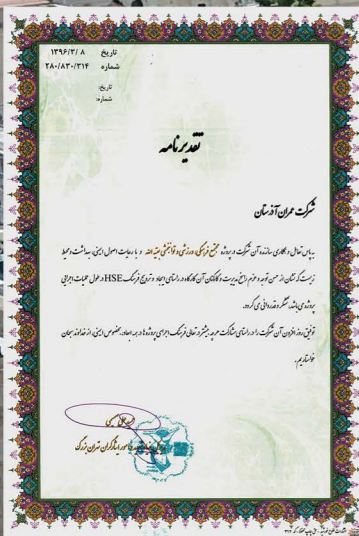 تاریخ ۱۳۹۶/۳/۸
شماره ۲۸۰/۸۳۰/۳۱۴
تاریخ:
شماره:
تقدیرنامه
شرکت عمران آذرستان
بپاس تعامل و همکاری سازنده آن شرکت در پروژه مجتمع فرهنگی، ورزشی و توانبخشی بقیه الله و با رعایت اصول ایمنی، بهداشت و محیط
زیست که نشان از حسن توجه و عزم راسخ مدیریت و کارکنان آن کارگاه در راستای ایجاد و ترویج فرهنگ HSE در طول عملیات اجرایی
پروژه می‌باشد، تشکر و قدردانی می گردد.
توفیق روز افزون آن شرکت را در راستای مشارکت هرچه بیشتر در تعالی فرهنگ اجرای پروژه ها در همه ابعاد، بخصوص ایمنی، از خداوند سبحان
خواستاریم.
امور ایثارگران تهران بزرگ